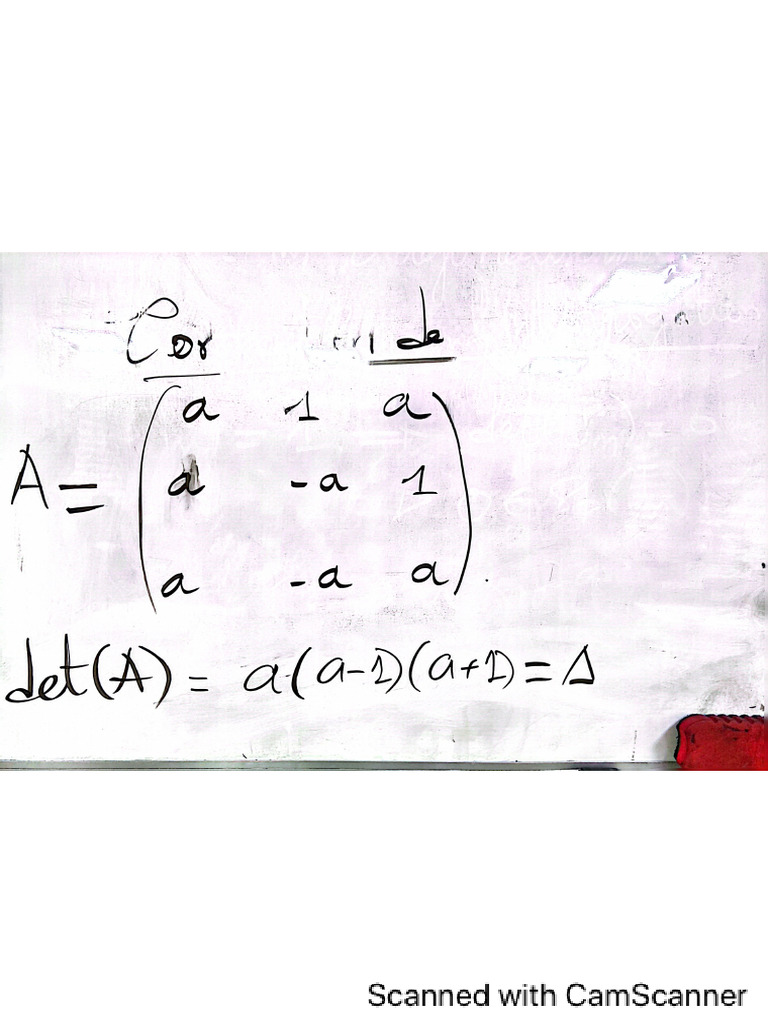 Cor de
a 1 a
A = a -a 1
a -a a
det(A) = a(a-1)(a+1) = Δ
Scanned with CamScanner